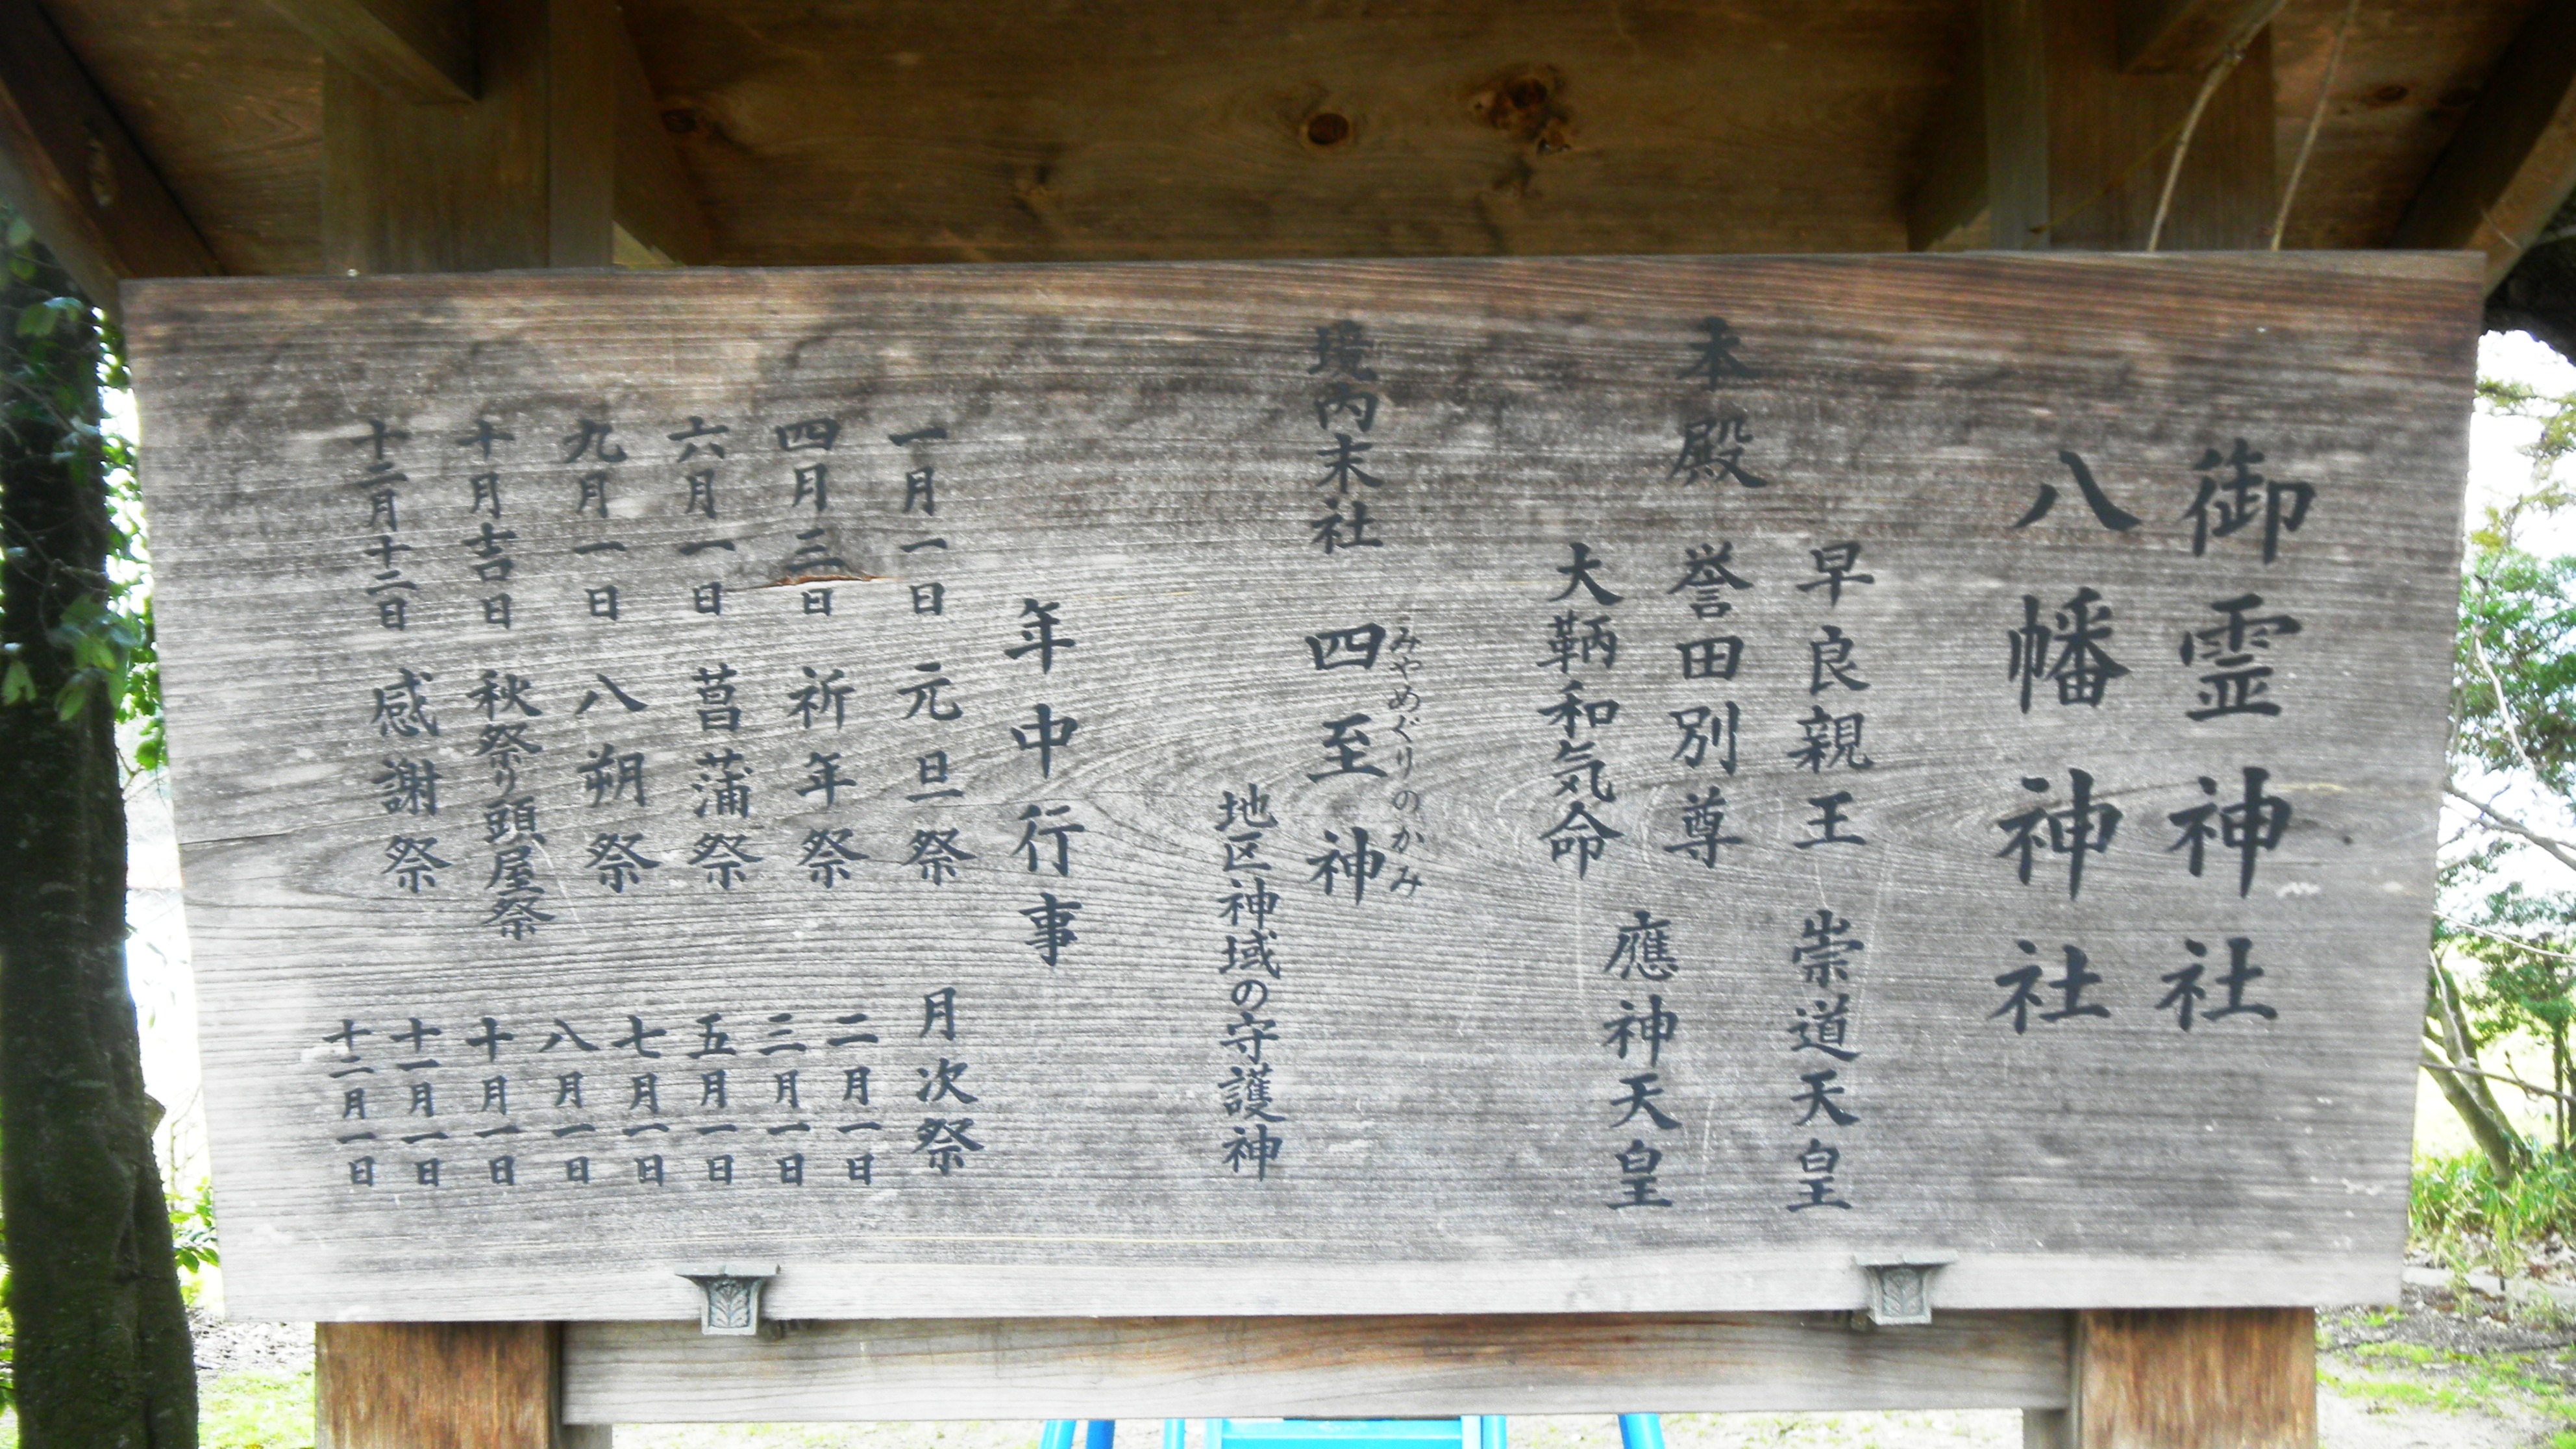 御霊神社
八幡神社
本殿
早良親王 崇道天皇
誉田別尊
大鞆和気命 應神天皇
境内末社
四至神
みやめぐりのかみ
地区神域の守護神
年中行事
一月一日 元旦祭
四月三日 祈年祭
六月一日 菖蒲祭
九月一日 八朔祭
十月吉日 秋祭り頭屋祭
十二月十二日 感謝祭
月次祭
二月一日
三月一日
五月一日
七月一日
八月一日
十月一日
十一月一日
十二月一日